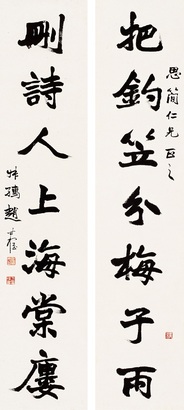 把鈎笠分梅子雨
思簡仁兄正之
刪詩人上海棠廔
叔孺趙時棡